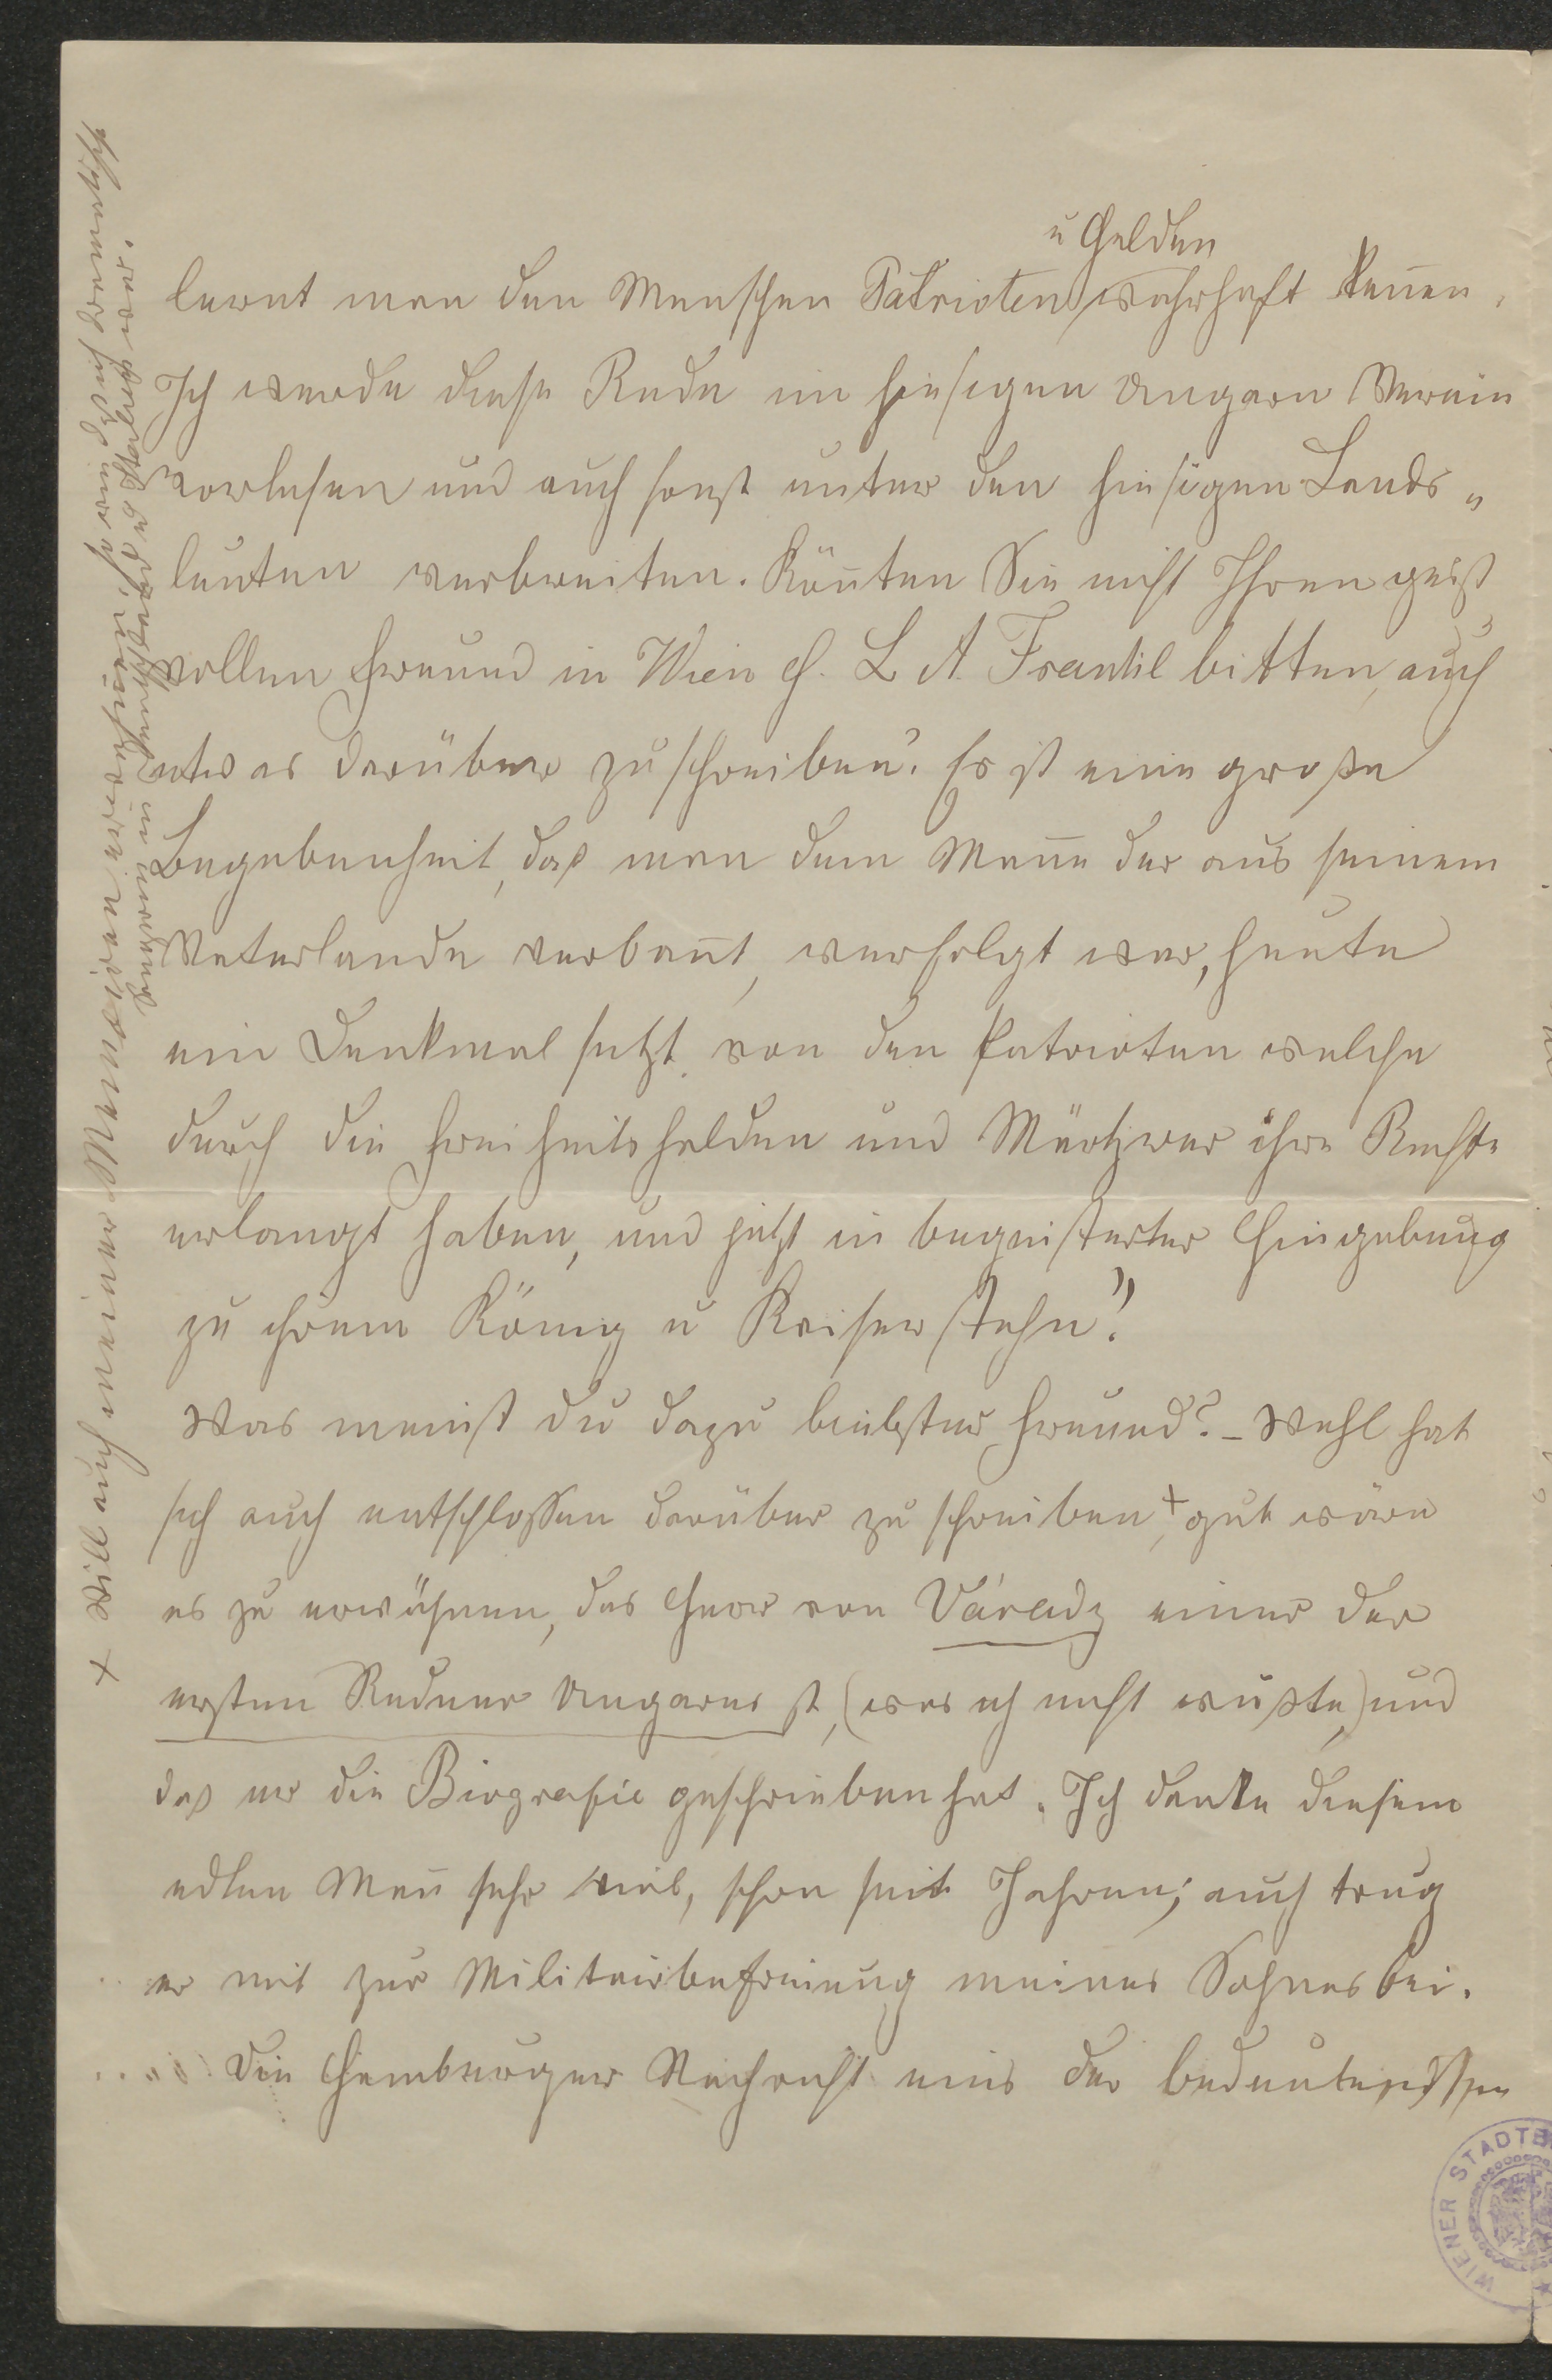 u Helden
lernt man den Menschen Patrioten wahrhaft ken̄en.
Ich werde diese Rede im hiesigen Ungarn Verein
vorlesen und auch sonst unter den hiesigen Lands„
leuten verbreiten. Kön̄ten Sie nicht Ihren geist„
vollen Freund in Wien H. L A. Frankl bitten, auch
etwas darüber zu schreiben? Es ist eine große
Begebenheit, das man dem Man̄e der aus seinem
Vaterlande verban̄t, verfolgt war, heute
ein Denkmal setzt von den Patrioten welche
durch die Freiheitshelden und Märtyrer ihre Rechte
erlangt haben, und jetzt in begeisterter Hingebung
zu ihrem König u Kaiser stehn!"
Was meinst du dazu liebster Freund? – Wehl hat
sich auch entschlossen darüber zu schreiben + gut wäre
es zu erwähnen, das Herr von Várady einer der
ersten Redner Ungarns ist, (was ich nicht wußte,) und
das er die Biografie geschrieben hat. Ich danke diesem
edlen Man̄ sehr viel, schon seit Jahren; auch trug
er mit zur Militairbefreiung meines Sohnes bei.
Die Hamburger Nachricht eins der bedeutensten
+ Bitte auch meinen
WIENER STADTB